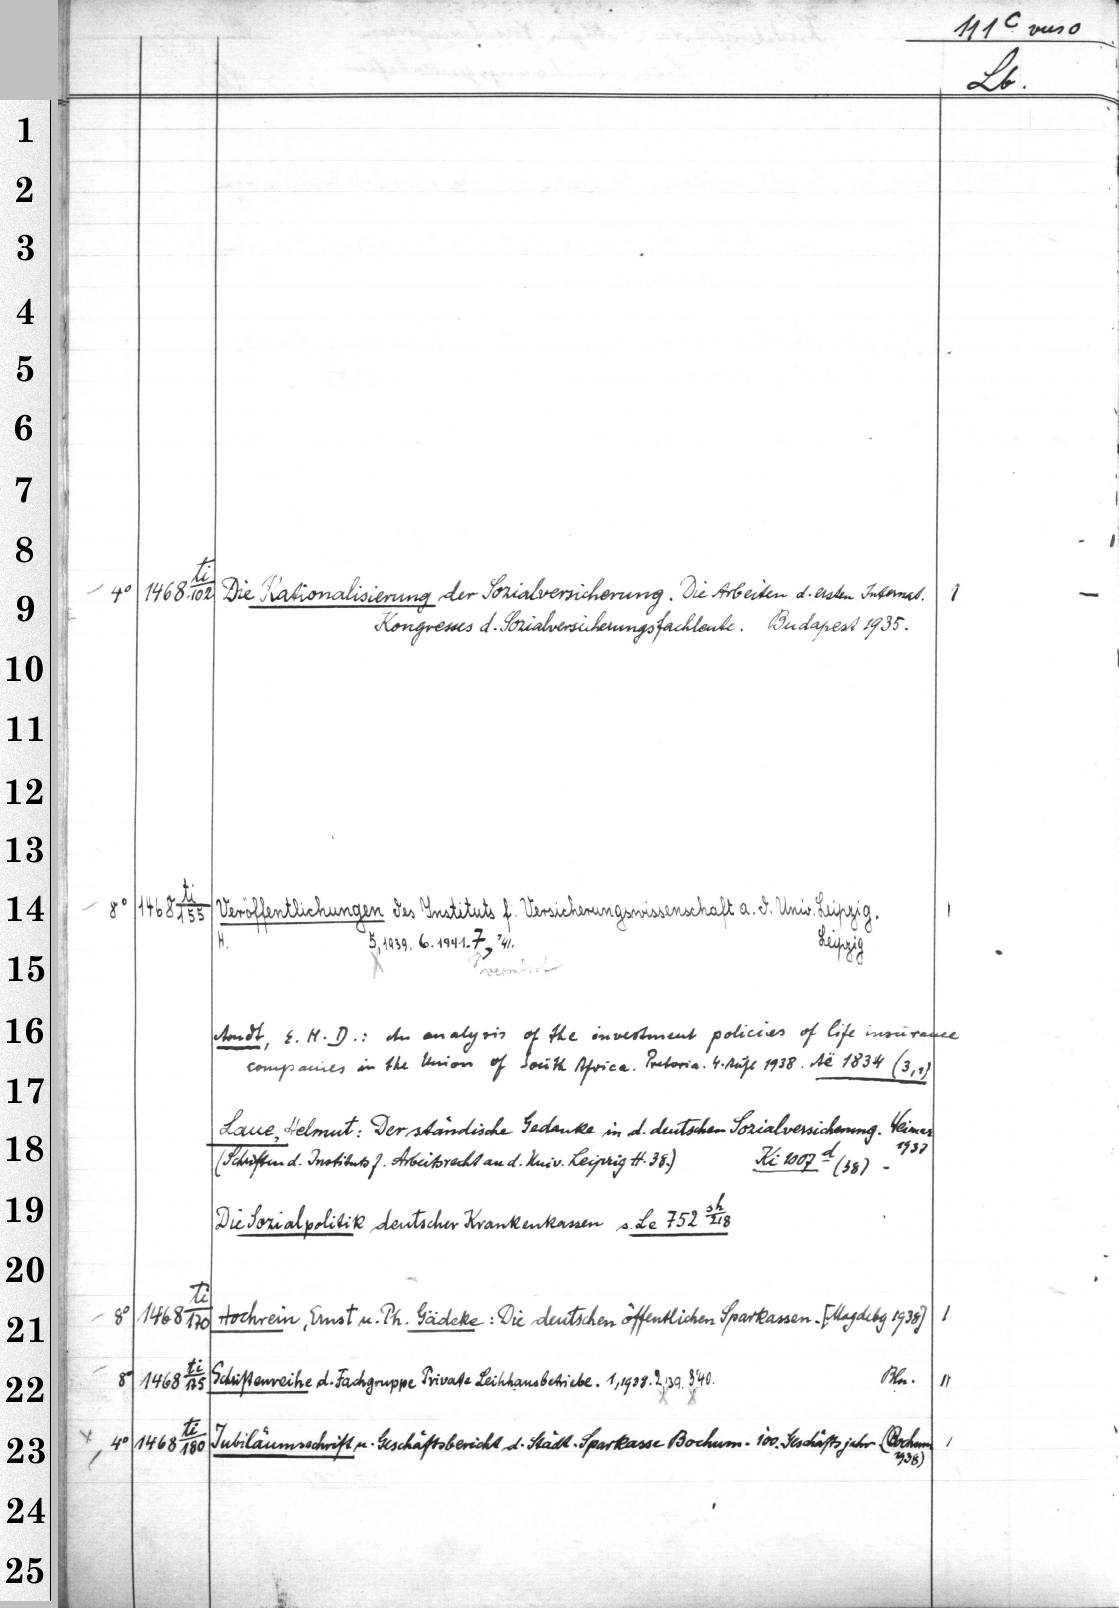 111 c verso
Lb.
1
2
3
4
5
6
7
8
9 4° 1468 ti/102 Die Rationalisierung der Sozialversicherung. Die Arbeiten d. ersten Internat. I
Kongresses d. Sozialversicherungsfachleute. Budapest 1935.
10
11
12
13
14 8° 1468 ti/155 Veröffentlichungen des Instituts f. Versicherungswissenschaft a. d. Univ. Leipzig. I
H. 5, 1939. 6. 1941. 7, '41. Leipzig
15
16 Arndt, E. H. D.: An analysis of the investment policies of life insurance
companies in the Union of South Africa. Pretoria. 4. Aufl 1938. Aë 1834 (3,1)
17
Laue, Helmut: Der ständische Gedanke in d. deutschen Sozialversicherung. Weimar
1937
18 (Schriften d. Instituts f. Arbeitsrecht an d. Univ. Leipzig H. 38.) Ki 1007 d (38) -
19 Die Sozialpolitik deutscher Krankenkassen s. Le 752 sh/218
20
21 8° 1468 ti/170 Hochrein, Ernst u. Ph. Gädeke: Die deutschen öffentlichen Sparkassen. [Magdebg 1938] I
22 8° 1468 ti/175 Schriftenreihe d. Fachgruppe Private Leihhausbetriebe. 1, 1938. 2, 39. 3 '40. Bln. II
23 4° 1468 ti/180 Jubiläumsschrift u. Geschäftsbericht d. Städt. Sparkasse Bochum. 100. Geschäftsjahr (Bochum I
1938)
24
25